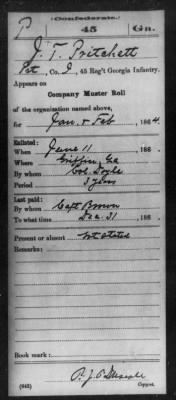 Confederate.
P 45 Ga.
J. T. Pritchett
Pvt, Co. I, 45 Reg't Georgia Infantry.
Appears on
Company Muster Roll
of the organization named above,
for Jan & Feb, 1864.
Enlisted:
When June 11, 186 .
Where Griffin, Ga
By whom Col. Doyle
Period 3 years
Last paid:
By whom Capt Brown
To what time Dec. 31, 186 .
Present or absent Not stated
Remarks:
Book mark:
(642) Copyist.